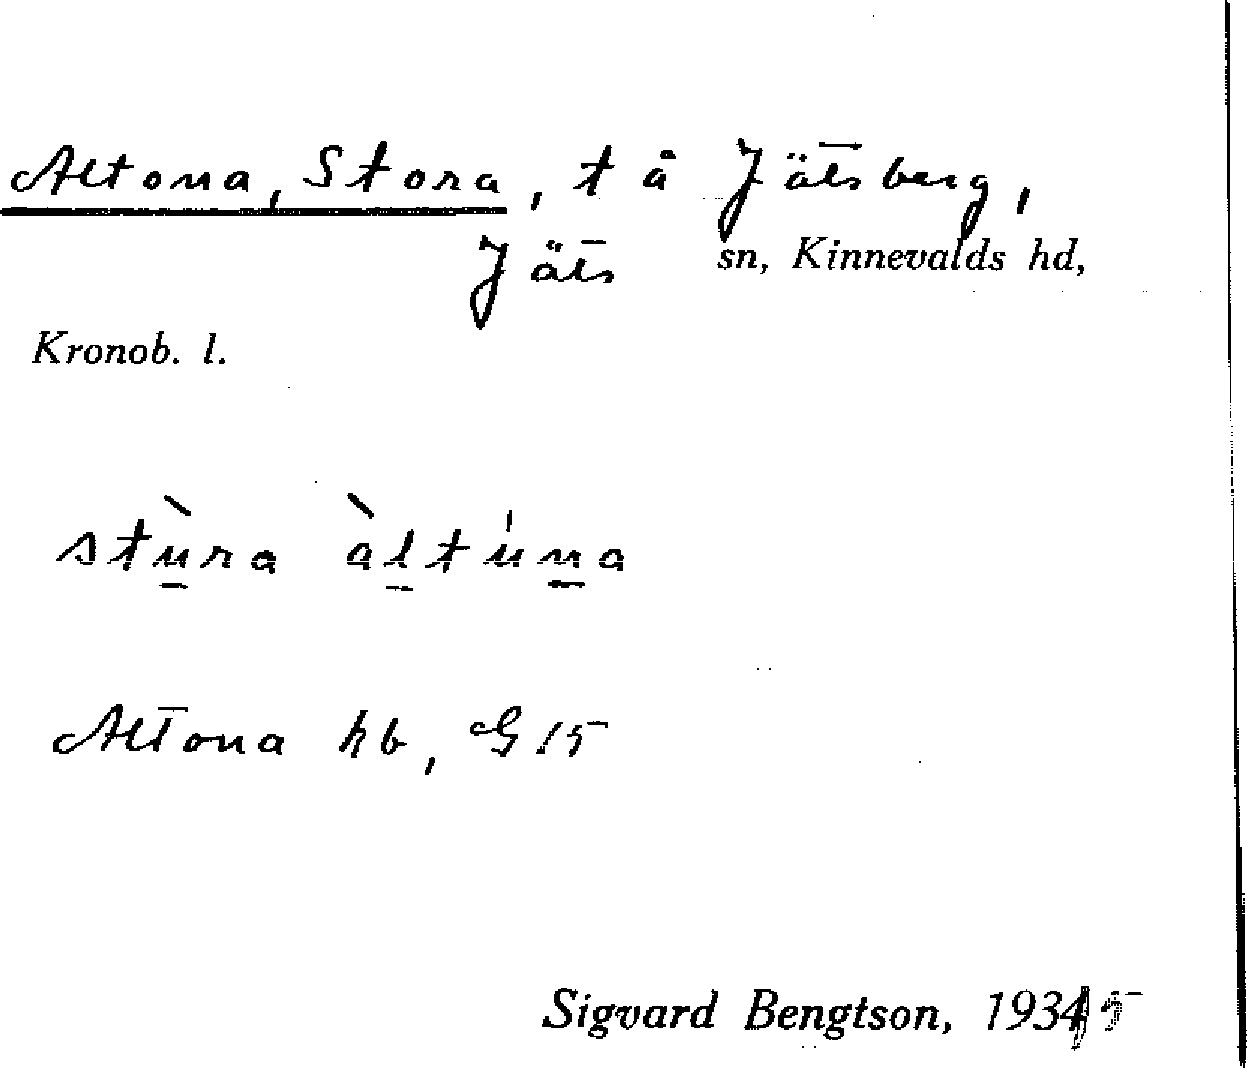 Altona, Stora, t å Jätsberg,
Jäts sn, Kinnevalds hd,
Kronob. l.
stùra àltúna
Altona hb, G 15
Sigvard Bengtson, 1935